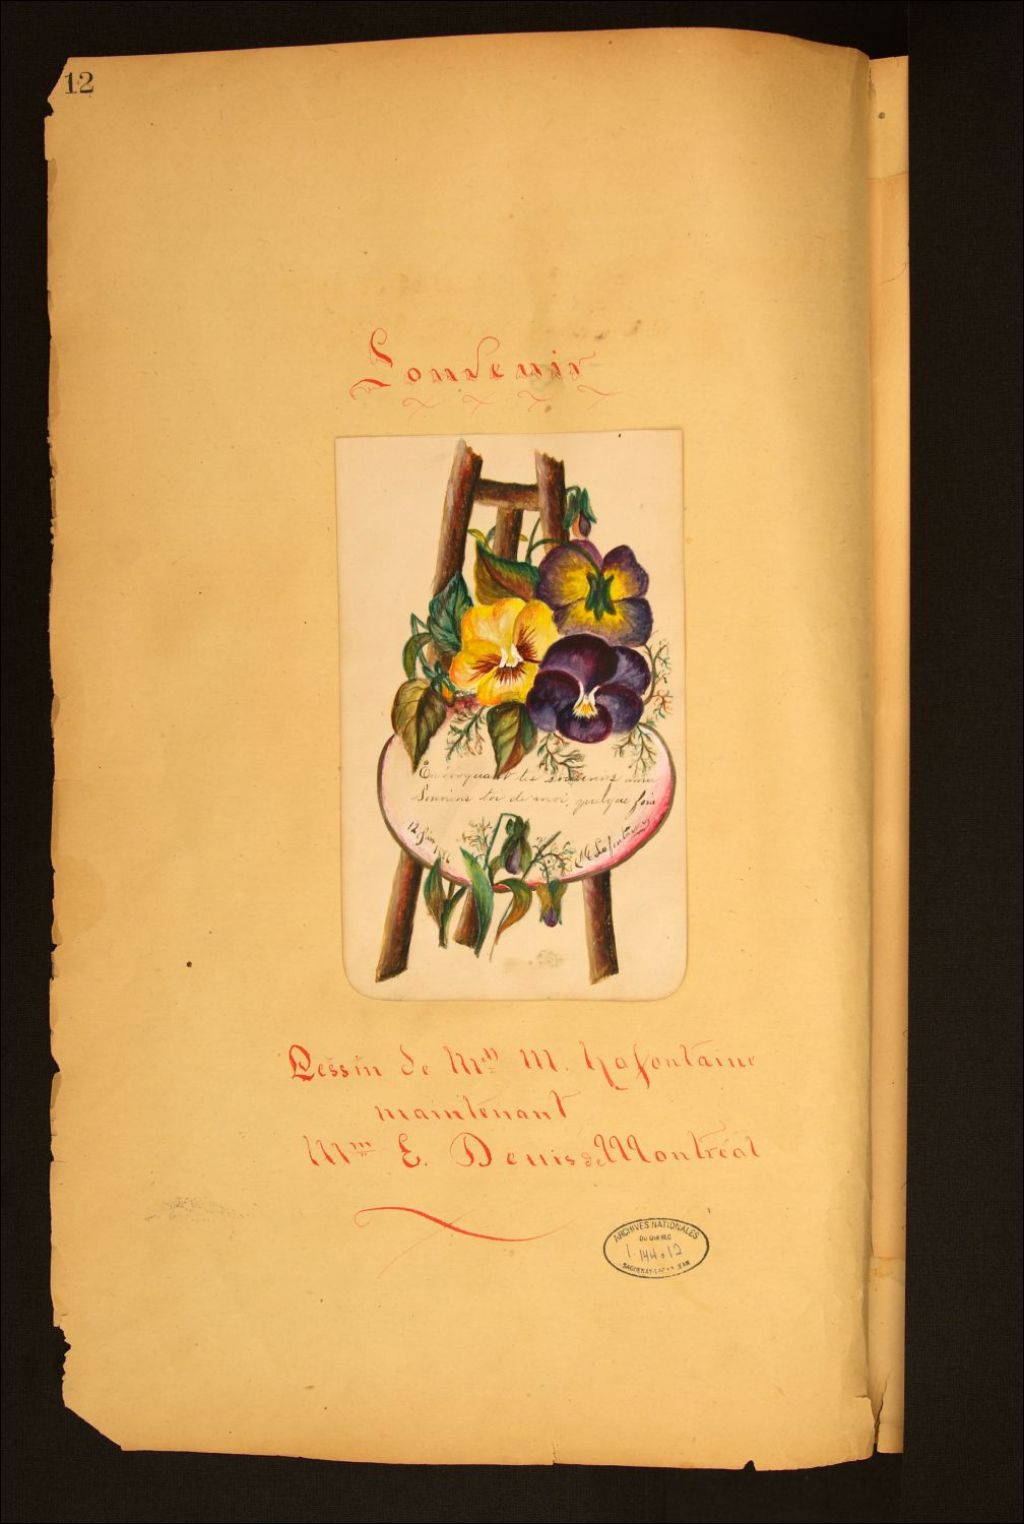 12
Souvenir
En évoquant tes souvenirs
Souviens toi de moi, quelque fois
12
M Lafontaine
Dessin de Mlle M. Lafontaine
maintenant
Mme E. Denis de Montréal
ARCHIVES NATIONALES
DU QUÉBEC
1-144.12
SAGUENAY-LAC-ST-JEAN